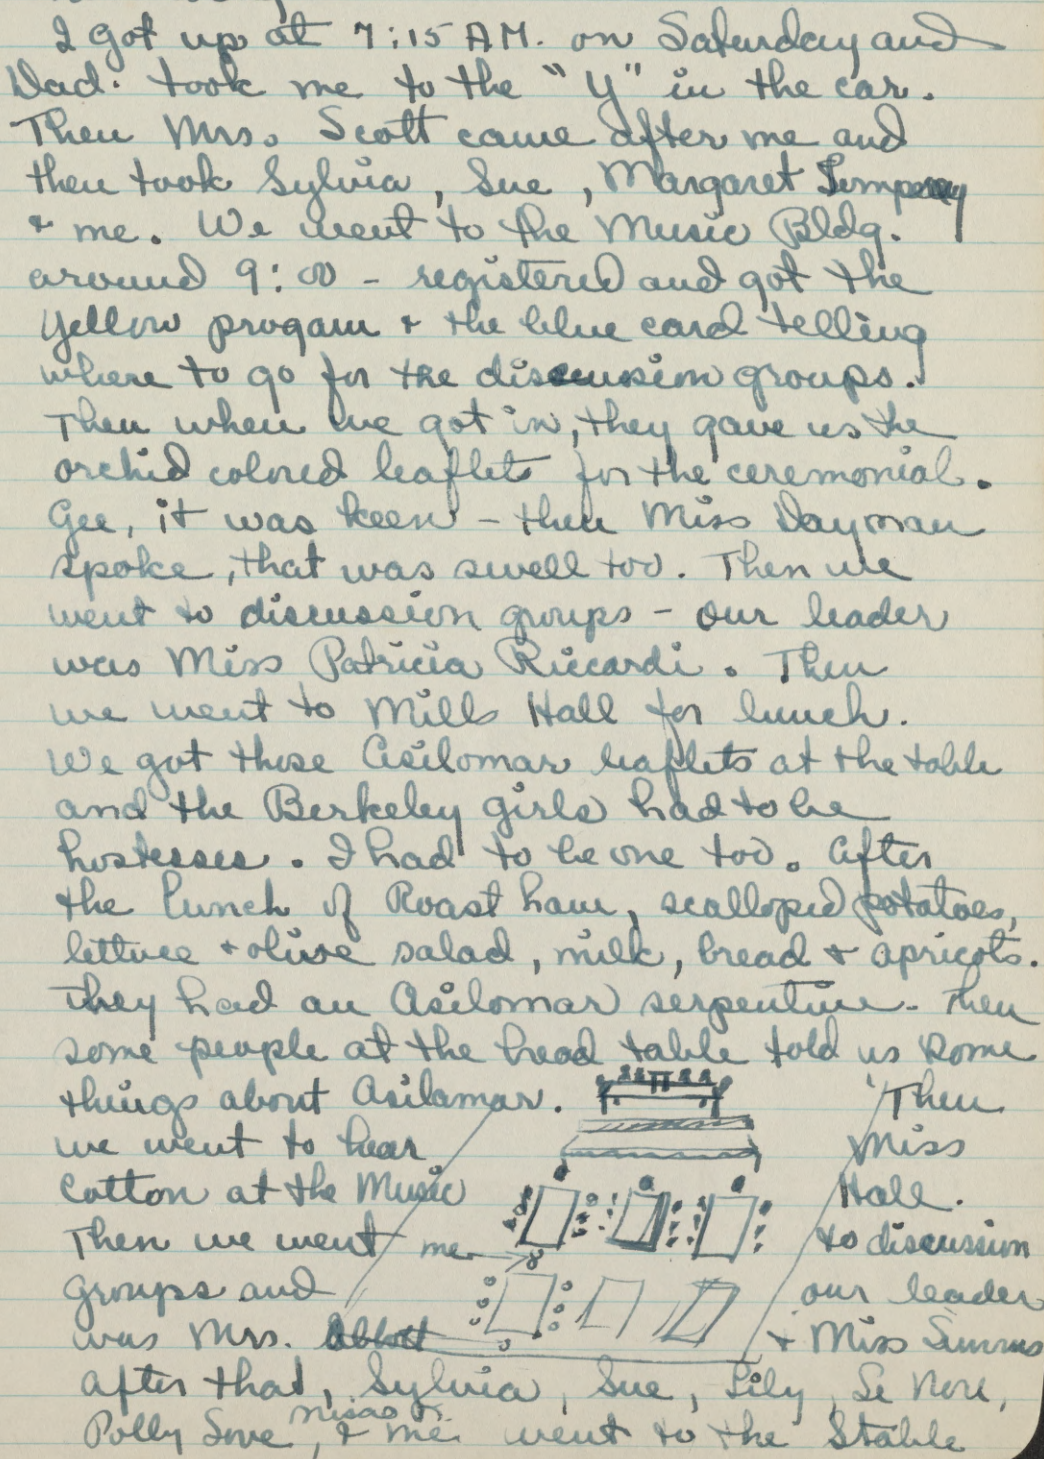 I got up at 7:15 A.M. on Saturday and
Dad. took me to the "Y" in the car.
Then Mrs. Scott came after me and
then took Sylvia, Sue, Margaret
+ me. We went to the Music Bldg.
around 9:00 - registered and got the
yellow progam + the blue card telling
where to go for the discussion groups.
Then when we got in, they gave us the
orchid colored leaflets for the ceremonial.
Gee, it was keen - then Miss Dayman
spoke, that was swell too. Then we
went to discussion groups - our leader
was Miss Patricia Riccardi. Then
we went to Mills Hall for lunch.
We got these Asilomar leaflets at the table
and the Berkeley girls had to be
hostesses. I had to be one too. After
the lunch of Roast ham, scalloped potatoes,
lettuce + olive salad, milk, bread + apricots.
They had an Asilomar serpentine. Then
some people at the head table told us some
things about Asilamar. Then
we went to hear Miss
Cotton at the Music Hall.
Then we went me to discussion
groups and our leader
was Mrs. Abbott + Miss Simms
After that, Sylvia, Sue, Lily, Le Nore,
Polly Love, Misao K. + me went to the Stable